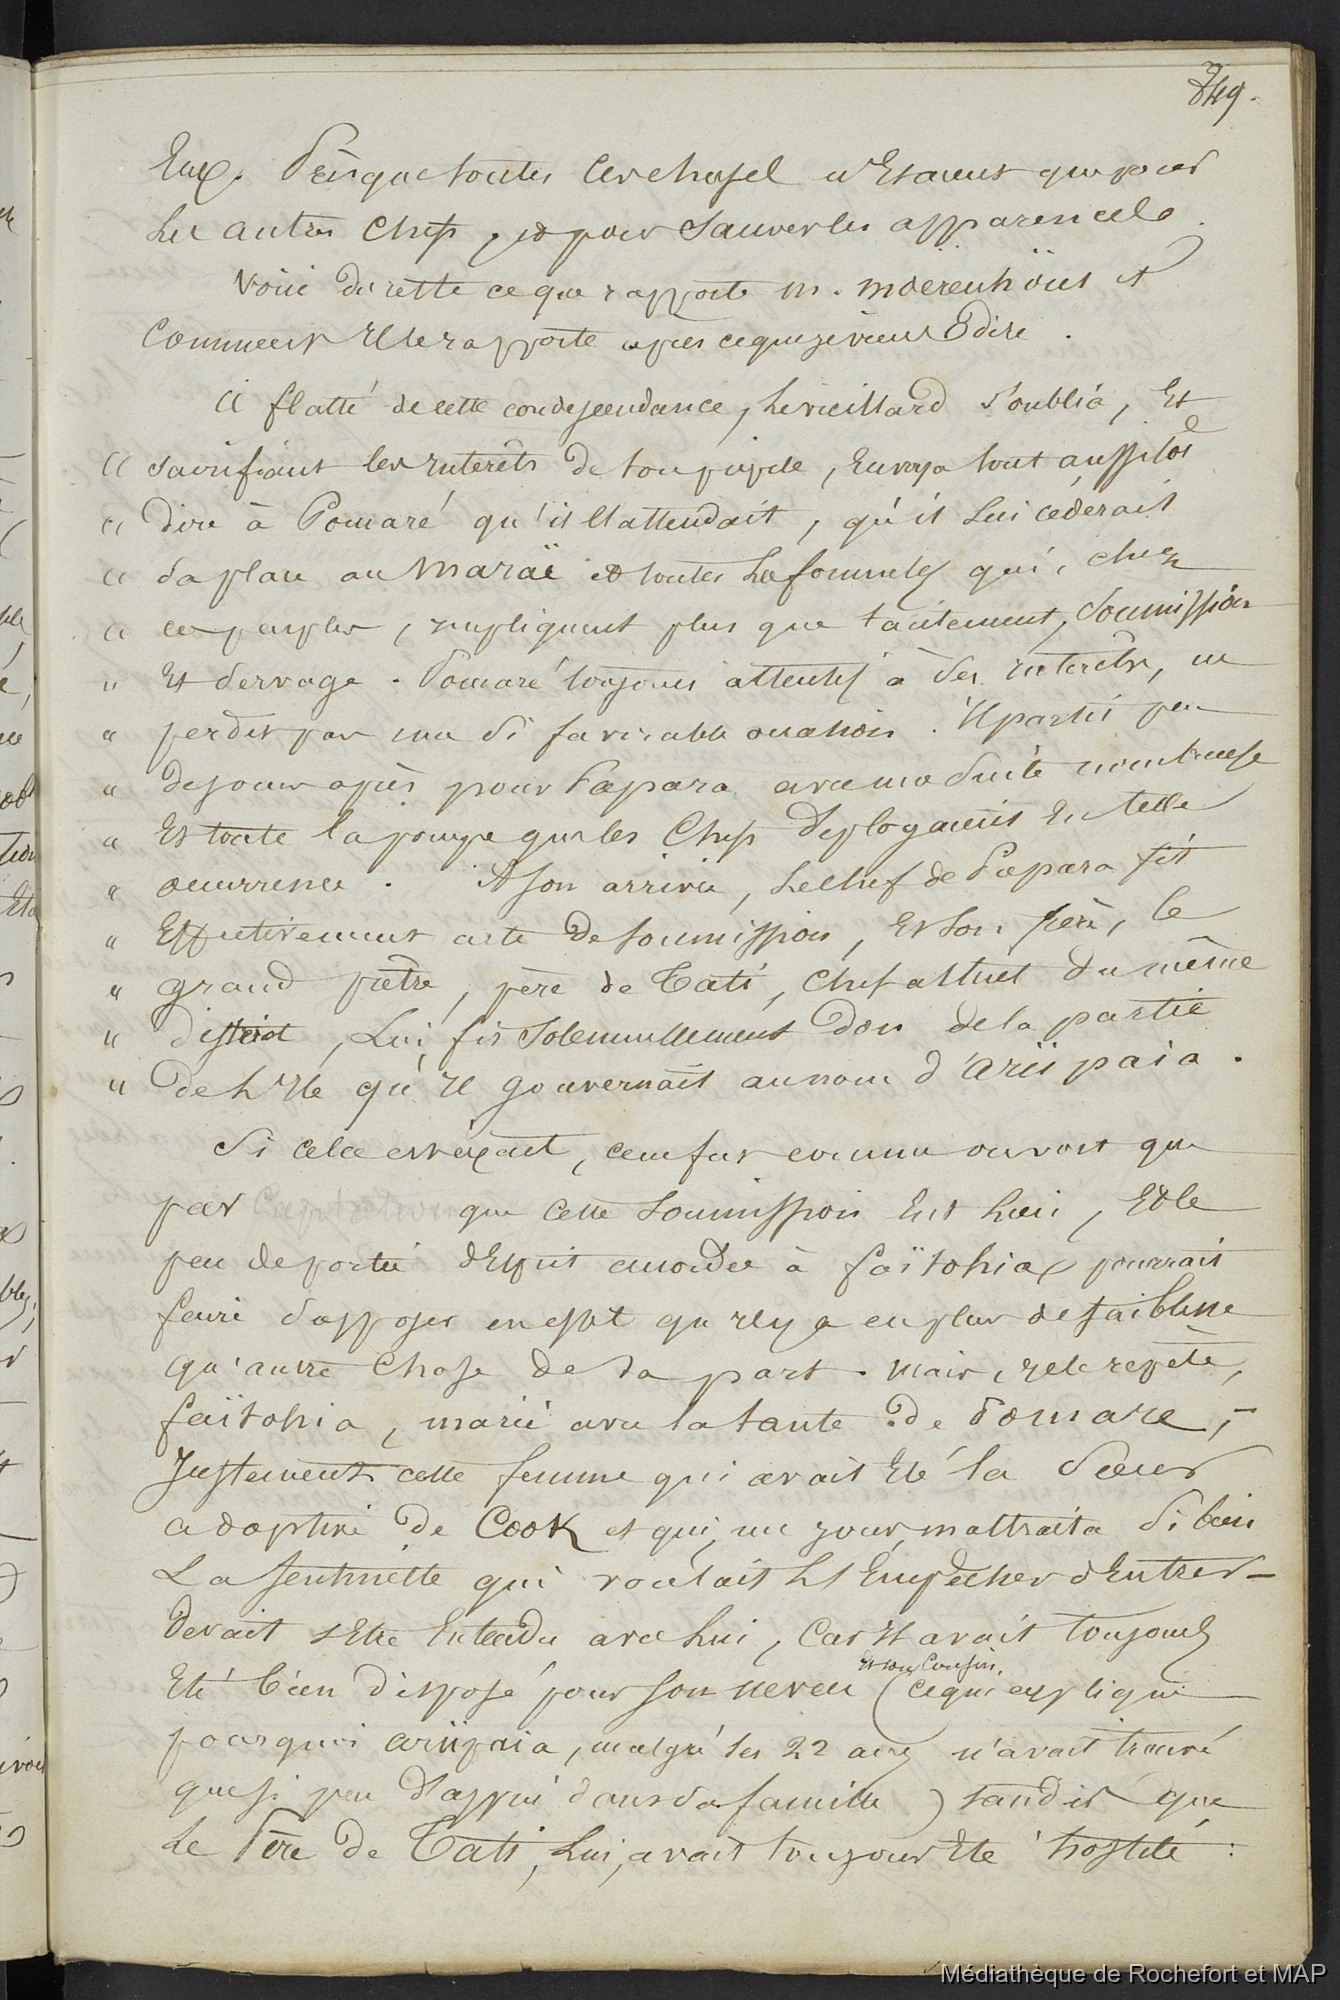 349.
Eux. Presque toutes ces choses n'Etaient que pour
Les autres Chefs, et pour Sauver les apparences.
Voici du reste ce que rapporte M. Möerenhöut et
Comment Il le rapporte après ce que je viens de dire.
« flatté de cette condescendance, Le vieillard S'oublia, Et
« sacrifiant les Interêts de son peuple, Envoya tout aussitot
« dire à Pomaré qu'il l'attendait, qu'il Lui cederait
« Sa place au Maraë et toutes Les formules qui, chez
« ces peuples, impliquent plus que tacitement, Soumission
« Et Servage. Pomaré toujours attentif à Ses interêts, ne
« perdit pas une Si favorable occasion. Il partit peu
« de jours après pour Papara avec une Suite nombreuse
« Et toute la pompe que les Chefs deployaient En telle
« occurrence. A son arrivée, Le Chef de Papara fit
« Effectivement acte de soumission, Et son père, le
« grand prêtre, père de Tati, Chef actuel du même
« district, Lui fit Solennellement don de la partie
« de L'Ile qu'Il gouvernait au nom d'Arii paia.
Si cela est exact, ce ne fut comme on voit que
par que cette Soumission Eut Lieu, Et le
peu de portée d'Esprit accordée à faïtohia pourrait
faire Supposer en effet qu'Il y a eu plus de faiblesse
qu'autre Chose de Sa part. Mais, je le repète,
faïtohia, marié avec la tante de Pomare, -
Justement cette femme qui avait Eté la Soeur
adoptive de Cook et qui, un jour, maltraita Si bien
La Sentinelle qui voulait L'Empêcher d'Entrer -
devait s'Etre Entendu avec Lui, Car Il avait toujours
Eté bien disposé pour son neveu Et son Cousin, (ce qui explique
pourquoi Ariipaia, malgré Ses 22 ans n'avait trouvé
que si peu d'appui dans Sa famille) tandis que
Le Père de Tati, Lui, avait toujours Eté hostile :
Médiathèque de Rochefort et MAP